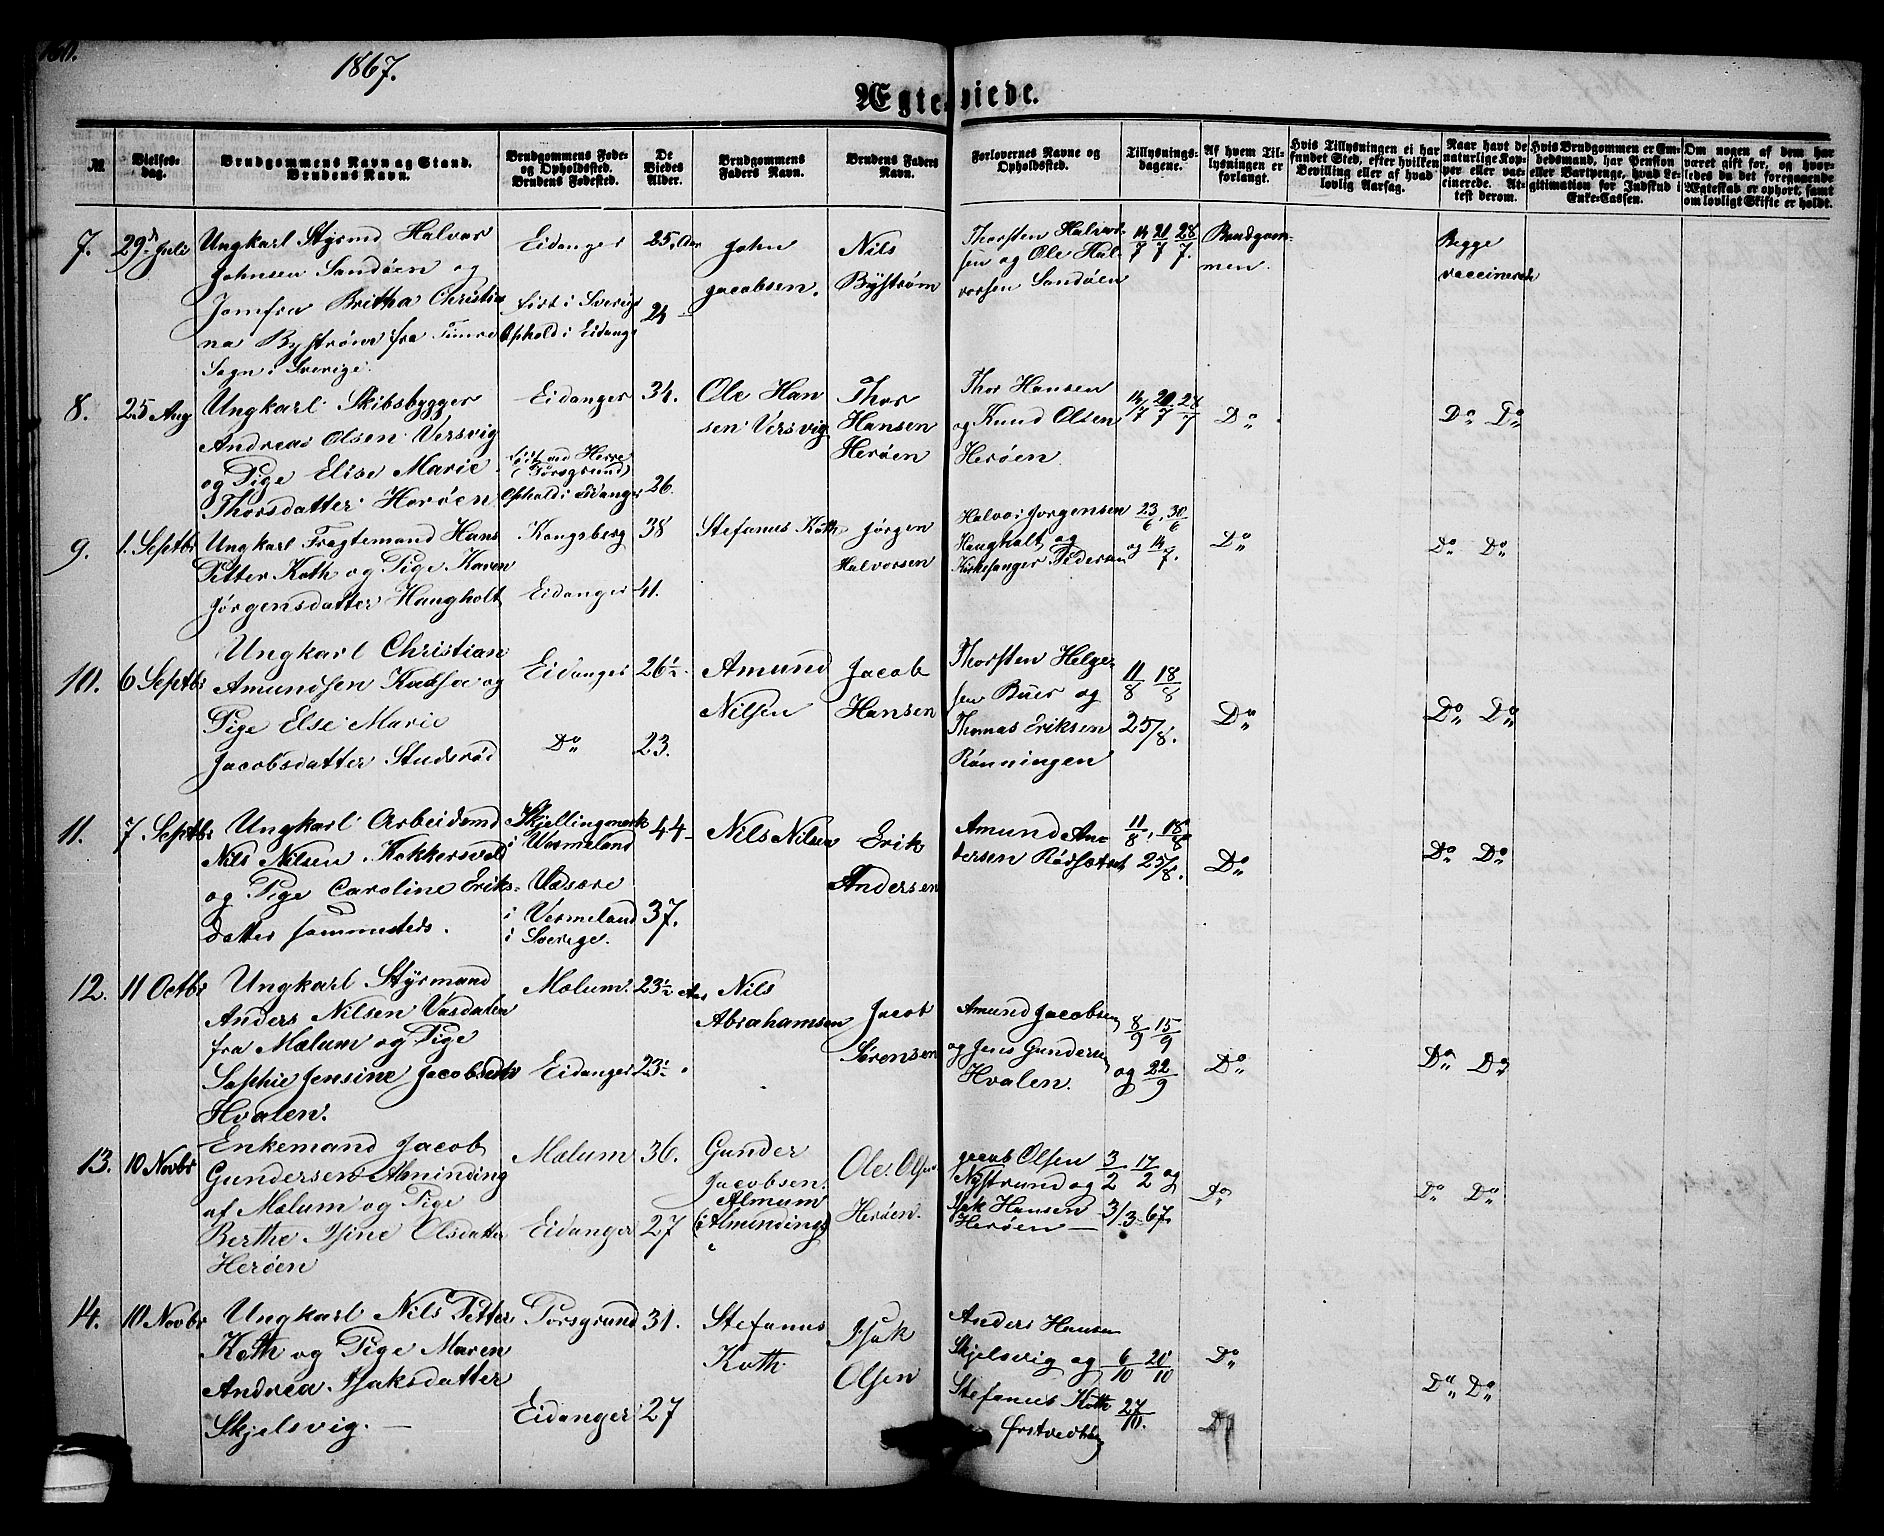 1867.
Ægteviede.
№.
Vielses-
dag.
Brudgommens Navn og Stand.
Brudens Navn.
Brudgommens Føde-
og Opholdssted.
Brudens Fødested.
De
Viedes
Alder.
Brudgommens
Faders Navn.
Brudens Faders
Navn.
Forlovernes Navne og
Opholdssted.
Tillysnings-
dagene.
Af hvem Til-
lysningen er
forlangt.
Hvis Tillysningen ei har
fundet Sted, efter hvilken
Bevilling eller af hvad
lovlig Aarsag.
Naar havt de
naturlige Kop-
per eller vac-
cinerede. At-
test derom.
Hvis Brudgommen er Em-
bedsmand, har Pension
eller Vartpenge, hvad Le-
gitimation for Indskud i
Enke-Cassen.
Om nogen af dem har
været gift før, og hvor-
ledes da det foregaaende
Ægteskab er ophørt, samt
om lovligt Skifte er holdt.
7.
29de Juli
Ungkarl Styrmd Halvor
Johnsen Sandøen og
Jomfru Britha Christia
na Bystrøm fra Timrå
Sogn i Sverige.
Eidanger
Født i Sverige
Ophold i Eidangr
25 Aar
24 —
John
Jacobsen.
Nils
Bystrøm
Thorsten Halvor-
sen og Ole Hal-
vorsen Sandøen
14/7 21/7 28/7.
Brudgom-
men.
Begge
vaccinerede
8.
25 Aug
Ungkarl Skibsbygger
Andreas Olsen Versvig
og Pige Elise Marie
Thorsdatter Herøen
Eidanger
Født ved Herre
(Porsgrund)
Ophold i Eidanger
34.
26.
Ole Han
sen Versvig
Thor
Hansen
Herøen
Thor Hansen
og Knud Olsen
Herøen
14/7 21/7 28/7
Do
Do Do
9.
1. Septbr
Ungkarl Fragtemand Hans
Petter Koth og Pige Karen
Jørgensdatter Haugholt
Kongsberg
Eidanger
38
41.
Stefanus Koth
Jørgen
Halvorsen
Halvor Jørgensen
Haugholt og
Kirkesanger Pedersen
23/6, 30/6
og 14/7.
Do
Do Do
10.
6 Septbr
Ungkarl Christian
Amundsen og
Pige Else Marie
Jacobsdatter Studsrød
Eidanger
Do
26½.
23.
Amund
Nilsen
Jacob
Hansen
Thorsten Helge-
sen Buer og
Thomas Eriksen
Rønningen
11/8 18/8
25/8.
Do
Do Do
11.
7 Septbr
Ungkarl Arbeidsmd
Nils Nilsen Kokkersvold
og Pige Caroline Eriks-
datter sammesteds.
Skjellingmark
i Wermeland
i Vermeland
i Sverige.
44 —
37.
Nils Nilsen
Erik
Andersen
Amund An-
dersen Rødsæteret
11/8, 18/8
25/8.
Do
Do Do
12.
11 Octbr
Ungkarl Styrmand
Anders Nilsen Vasdalen
fra Mælum og Pige
Sophie Jensine Jacobsdtr
Hvalen.
Mælum.
Eidanger
23½ Aar
23½
Nils
Abrahamsen
Jacob
Sørensen
Amund Jacobsen
og Jens Gundersen
Hvalen.
8/9 15/9
og 22/9
Do
Do Do
13.
10 Novbr
Enkemand Jacob
Gundersen Alminding
af Mælum og Pige
Berthe Isine Olsdatter
Herøen
Mælum
Eidanger
36.
27
Gunder
Jacobsen.
Almum
(Almindinge)
Ole Olsen
Herøen.
Jacob Olsen
Nystrand og
Isak Hansen
Herøen —
3/2 17/2 og
3/3 67.
Do
Do Do
14.
10 Novbr
Ungkarl Nils Petter
Koth og Pige Maren
Andrea Isaksdatter
Skjelsvig. —
Porsgrund
Eidanger
31.
27
Stefanus
Koth.
Isak
Olsen
Anders Hansen
Skjelsvig og
Stefanus Koth
Ørstvedt
6/10 20/10
27/10.
Do
Do
Do Do